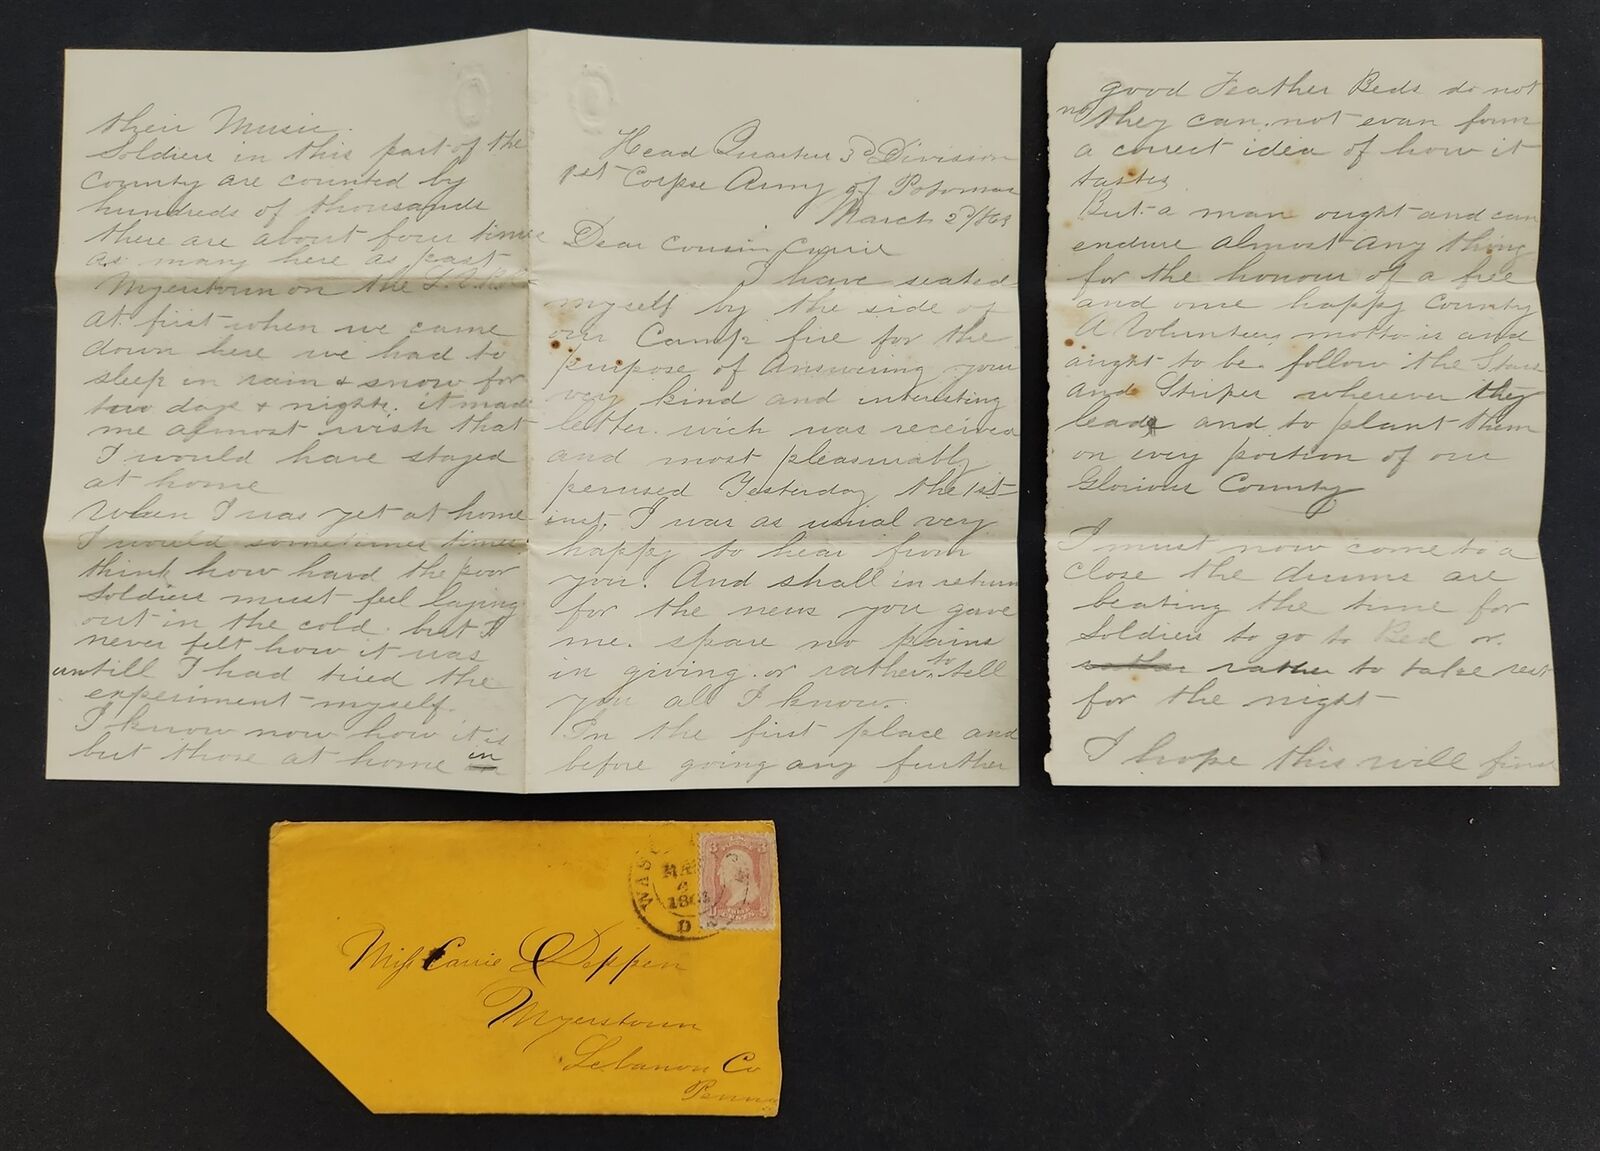 Head Quarters 3d Division
1st Corpse Army of Potomac
March 2d/63
Dear Cousin Carrie
I have seated
myself by the side of
our Camp fire for the
purpose of Answering your
very kind and interesting
letter. wich was received
and most pleasurably
perused Yesterday the 1st
inst. I was as usual very
happy to hear from
you. And shall in return
for the news you gave
me. spare no pains
in giving. or rather to tell
you all I know.
In the first place and
before going any further
their Music.
Soldiers in this part of the
County are counted by
hundreds of thousands
there are about four times
as many here as past
Myerstown on the L.V.R.R
at first when we came
down here we had to
sleep in rain & snow for
two days & nights. it made
me almost wish that
I would have stayed
at home
When I was yet at home
I would sometimes times
think how hard the poor
Soldiers must feel laying
out in the cold. but I
never felt how it was
untill I had tried the
experiment myself.
I know now how it is
but those at home in
good Feather Beds do not
no they can. not evan form
a correct idea of how it
tastes
But a man ought and can
endure almost any thing
for the honour of a free
and once happy County
A Volunteers motto is and
aught to be. follow the Stars
and Stripes wherever they
lead and to plant them
on every portion of our
Glorious County
I must now come to a
close the drums are
beating the time for
Soldiers to go to Bed or.
rather rather to take rest
for the night
I hope this will find
WAS
MAR
186
D
U S
3 3
Miss Carrie Deppen
Myerstown
Lebanon Co
Penna